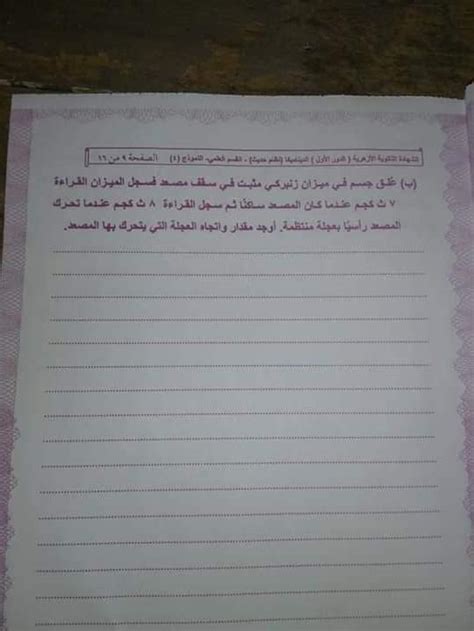 الشهادة الثانوية الأزهرية ( الدور الأول ) الديناميكا (نظام حديث) - القسم العلمي- النموذج (٤) الصفحة ٩ من ١٦
(ب) عُلق جسم في ميزان زنبركي مثبت في سقف مصعد فسجل الميزان القراءة
٧ ث كجم عندما كان المصعد ساكنًا ثم سجل القراءة ٨ ث كجم عندما تحرك
المصعد رأسيًا بعجلة منتظمة. أوجد مقدار واتجاه العجلة التي يتحرك بها المصعد.